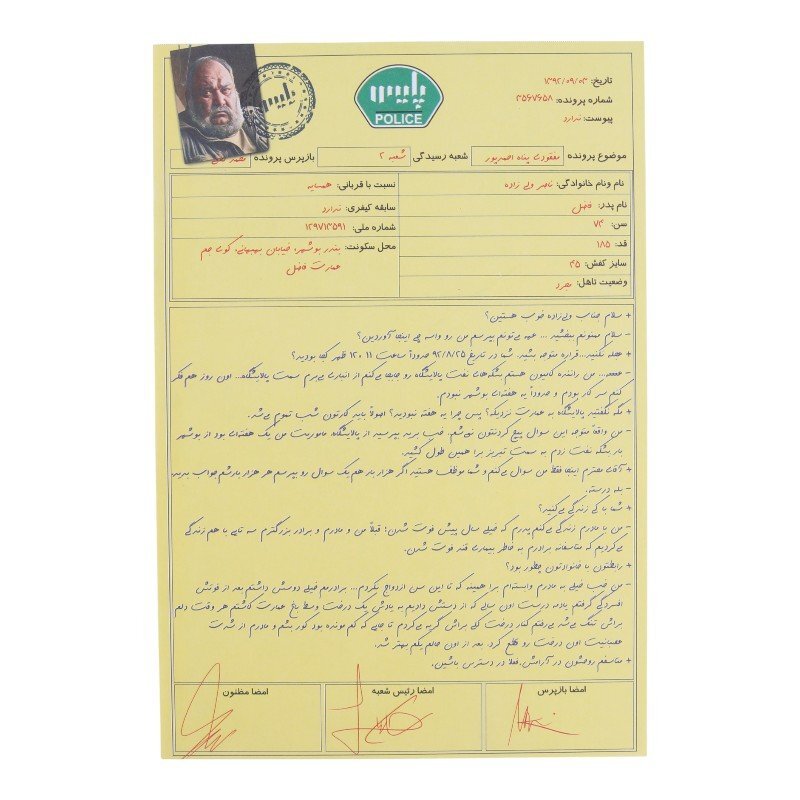 پلیس
پلیس
POLICE
تاریخ: ۱۳۹۲/۰۹/۰۳
شماره پرونده: ۳۵۶۷۶۵۸
پیوست: ندارد
موضوع پرونده مفقودی پناه احمدپور شعبه رسیدگی شعبه ۲ بازپرس پرونده
نام ونام خانوادگی: ناصر ولی زاده نسبت با قربانی: همسایه
نام پدر: فضل سابقه کیفری: ندارد
سن: ۷۳ شماره ملی: ۱۲۹۷۱۳۵۹۱
قد: ۱۸۵ محل سکونت: بندر بوشهر، خیابان بهبهانی، کوی جم
سایز کفش: ۴۵ عمارت فضل
وضعیت تاهل: مجرد
+ سلام جناب ولی‌زاده خوب هستین؟
- سلام ممنونم ببخشید ... می‌تونم بپرسم من رو واسه چی اینجا آوردین؟
+ عجله نکنید... قراره متوجه بشید. شما در تاریخ ۹۲/۸/۲۵ حدوداً ساعت ۱۱ تا ۱۲ ظهر کجا بودید؟
- عممم... من راننده کامیون هستم بشکه‌های نفت پالایشگاه رو جابجا می‌کنم از انباری می‌برم سمت پالایشگاه... اون روز هم فکر
کنم سر کار بودم و حدوداً یه هفته‌ای بوشهر نبودم.
+ مگه نگفتید پالایشگاه به عمارت نزدیکه؟ پس چرا یه هفته نبودید؟ اصولا باید کارتون شب تموم می‌شد.
- من واقعاً متوجه این سوال پیچ کردنتون نمی‌شم. خب برید بپرسید از پالایشگاه، ماموریت من یک هفته‌ای بود از بوشهر
بار بشکه نفت زدم به سمت تبریز برا همین طول کشید.
+ آقای محترم اینجا فقط من سوال می‌کنم و شما موظف هستید اگر هزار بار هم یک سوال رو بپرسم هر هزار بارشم جواب بدید.
- بله درسته.
+ شما با کی زندگی می‌کنید؟
- من با مادرم زندگی می‌کنم پدرم که خیلی سال پیش فوت شدن؛ قبلاً من و مادرم و برادر بزرگترم سه تایی با هم زندگی
می‌کردیم که متاسفانه برادرم به خاطر بیماری قند فوت شدن.
+ رابطتون با خانوادتون چطور بود؟
- من خب خیلی به مادرم وابسته‌ام برا همینه که تا این سن ازدواج نکردم... برادرمم خیلی دوسش داشتم بعد از فوتش
افسردگی گرفتم یادمه درست اون سالی که از دستش دادیم به یادش یک درخت وسط باغ عمارت کاشتم هر وقت دلم
براش تنگ می‌شد می‌رفتم کنار درخت کلی براش گریه می‌کردم تا جایی که کم مونده بود کور بشم و مادرم از شدت
عصبانیت اون درخت رو قطع کرد. بعد از اون حالم یکم بهتر شد.
+ متاسفم روحشون در آرامش، فعلا در دسترس باشین.
امضا بازپرس امضا رئیس شعبه امضا مظنون